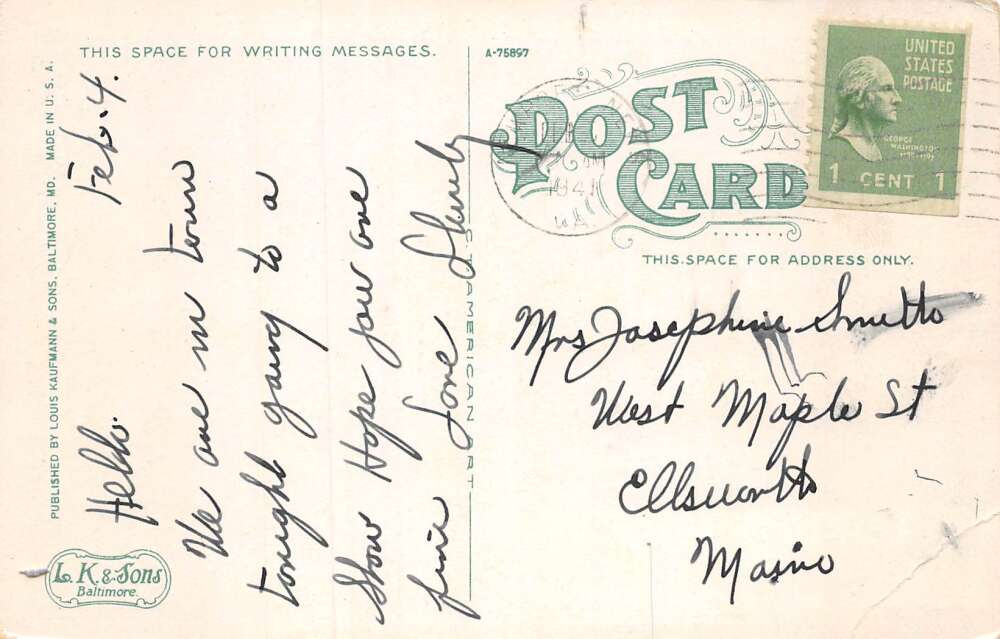 THIS SPACE FOR WRITING MESSAGES.
A-75897
POST
CARD
THIS SPACE FOR ADDRESS ONLY.
UNITED
STATES
POSTAGE
GEORGE
WASHINGTON
1 CENT 1
FEB
194
VA
Feb. 4.
Hello.
We are in town
tonight going to a
show Hope you are
fine Love
Mrs Josephine
West Maple St
Ellsworth
Maine
PUBLISHED BY LOUIS KAUFMANN & SONS, BALTIMORE, MD. MADE IN U. S. A.
AMERICAN ART
L. K. & Sons
Baltimore.